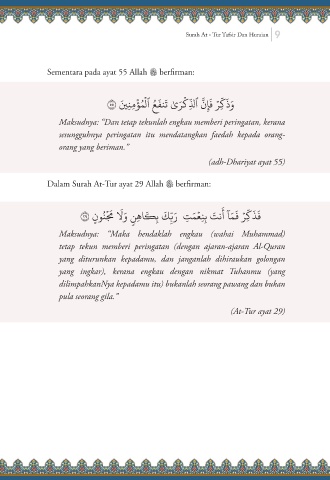 Surah At - Tur Tafsir Dan Huraian 9
Sementara pada ayat 55 Allah ﷻ berfirman:
وَذَكِّرْ فَإِنَّ ٱلذِّكْرَىٰ تَنفَعُ ٱلْمُؤْمِنِينَ ٥٥
Maksudnya: “Dan tetap tekunlah engkau memberi peringatan, kerana
sesungguhnya peringatan itu mendatangkan faedah kepada orang-
orang yang beriman.”
(adh-Dhariyat ayat 55)
Dalam Surah At-Tur ayat 29 Allah ﷻ berfirman:
فَذَكِّرْ فَمَآ أَنتَ بِنِعْمَتِ رَبِّكَ بِكَاهِنٍ وَلَا مَجْنُونٍ ٢٩
Maksudnya: “Maka hendaklah engkau (wahai Muhammad)
tetap tekun memberi peringatan (dengan ajaran-ajaran Al-Quran
yang diturunkan kepadamu, dan janganlah dihiraukan golongan
yang ingkar), kerana engkau dengan nikmat Tuhanmu (yang
dilimpahkanNya kepadamu itu) bukanlah seorang pawang dan bukan
pula seorang gila.”
(At-Tur ayat 29)